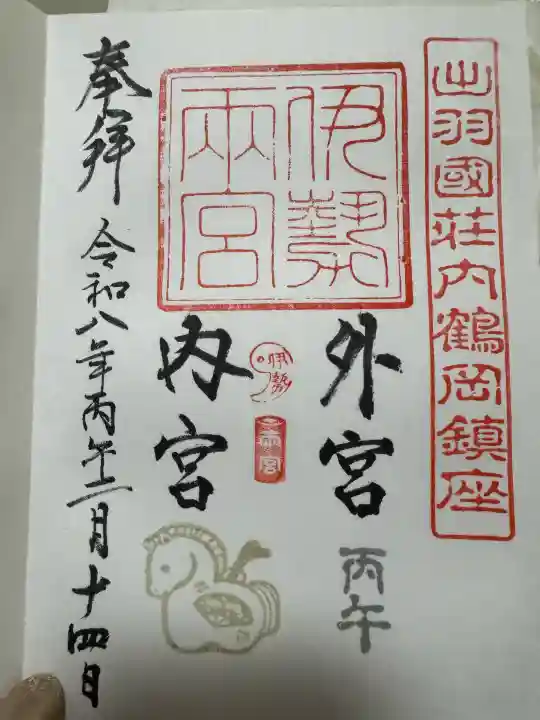 出羽國荘内鶴岡鎮座
伊勢
兩宮
外宮
丙午
伊勢
両宮
内宮
奉拜
令和八年丙午二月十四日